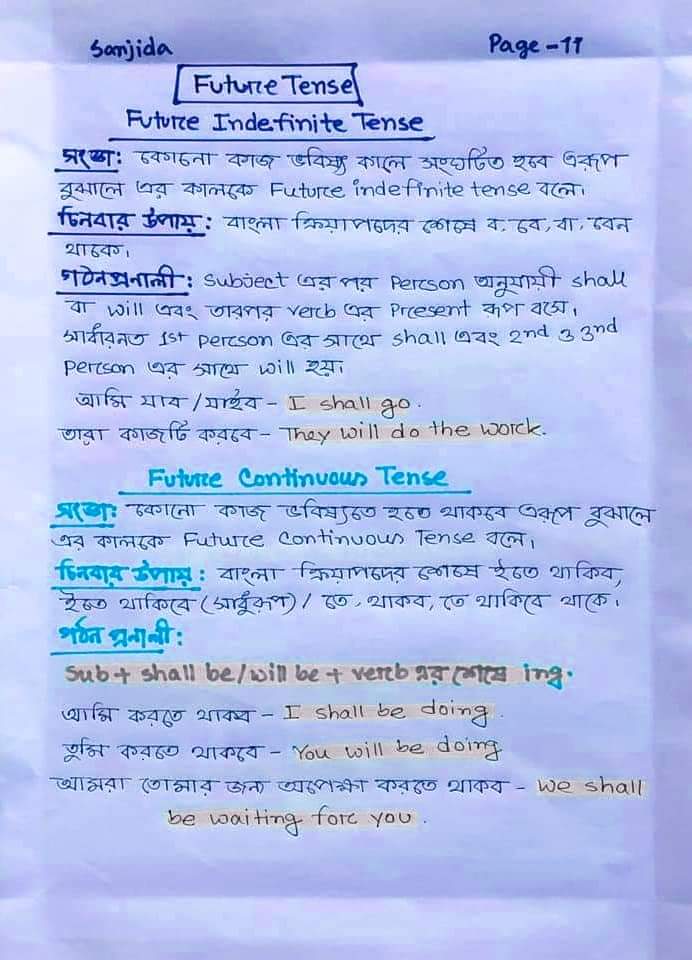 Sanjida Page-11
Future Tense
Future Indefinite Tense
সংজ্ঞা: কোনো কাজ ভবিষ্যৎ কালে সংঘটিত হবে এরূপ
বুঝালে এর কালকে Future indefinite tense বলে।
চিনবার উপায়: বাংলা ক্রিয়াপদের শেষে ব, বে, বা, বেন
থাকে।
গঠনপ্রনালী: Subject এর পর Person অনুযায়ী shall
বা will এবং তারপর verb এর Present রূপ বসে।
সাধারনত 1st person এর সাথে shall এবং 2nd ও 3nd
person এর সাথে will হয়।
আমি যাব/যাইব - I shall go.
তারা কাজটি করবে - They will do the work.
Future Continuous Tense
সংজ্ঞা: কোনো কাজ ভবিষ্যতে হতে থাকবে এরূপ বুঝালে
এর কালকে Future Continuous Tense বলে।
চিনবার উপায়: বাংলা ক্রিয়াপদের শেষে ইতে থাকিব,
ইতে থাকিবে (সাধুরূপ)/ তে, থাকব, তে থাকিবে থাকে।
গঠন প্রনালী:
Sub + shall be/will be + verb এর শেষে ing.
আমি করতে থাকব - I shall be doing.
তুমি করতে থাকবে - You will be doing
আমরা তোমার জন্য অপেক্ষা করতে থাকব - we shall
be waiting for you.